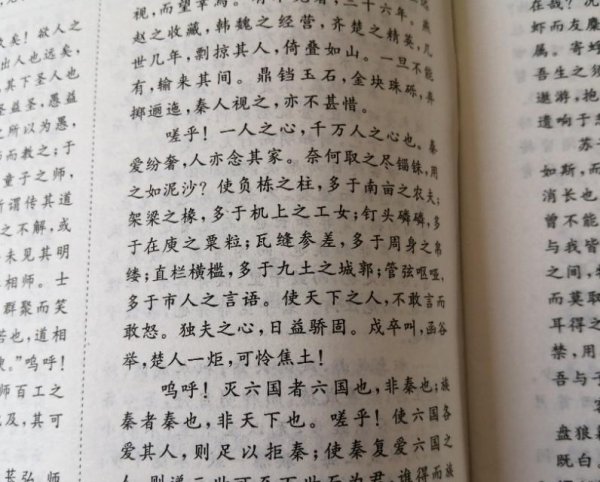 矣！欲人之
出人也远矣，
其下圣人也
圣益圣，愚益
之所以为愚，
而教之；于
童子之师，
所谓传其道
之不解，或
未见其明
相师。士
群聚而笑
若也，道相
呜呼！
师百工之
及，其可
苌弘、师
视，而望幸焉。有不见者，三十六年。燕
赵之收藏，韩魏之经营，齐楚之精英，几
世几年，剽掠其人，倚叠如山。一旦不能
有，输来其间。鼎铛玉石，金块珠砾，弃
掷逦迤，秦人视之，亦不甚惜。
嗟乎！一人之心，千万人之心也。秦
爱纷奢，人亦念其家。奈何取之尽锱铢，用
之如泥沙？使负栋之柱，多于南亩之农夫；
架梁之椽，多于机上之工女；钉头磷磷，多
于在庾之粟粒；瓦缝参差，多于周身之帛
缕；直栏横槛，多于九土之城郭；管弦呕哑，
多于市人之言语。使天下之人，不敢言而
敢怒。独夫之心，日益骄固。戍卒叫，函谷
举，楚人一炬，可怜焦土！
呜呼！灭六国者六国也，非秦也；族
秦者秦也，非天下也。嗟乎！使六国各
爱其人，则足以拒秦；使秦复爱六国之
人，则递三世可至万世而为君，谁得而族
在哉？况
虾而友麋
属。寄蜉
吾生之须
遨游，抱
遗响于悲
苏
如斯，而
消长也
曾不能
与我皆
之间，
而莫取
耳得之
禁，用
吾与子
客
盘狼
既白。